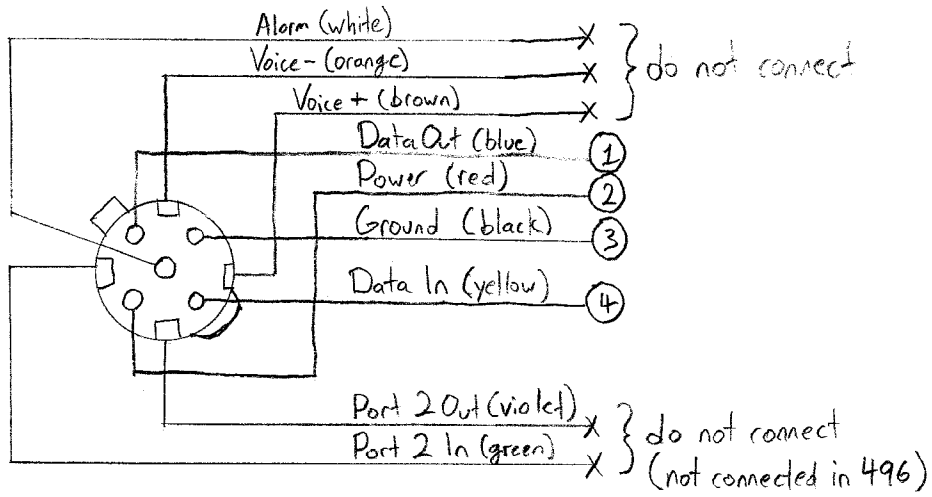 Alarm (white)
Voice- (orange)
Voice+ (brown)
do not connect
Data Out (blue)
1
Power (red)
2
Ground (black)
3
Data In (yellow)
4
Port 2 Out (violet)
Port 2 In (green)
do not connect
(not connected in 496)